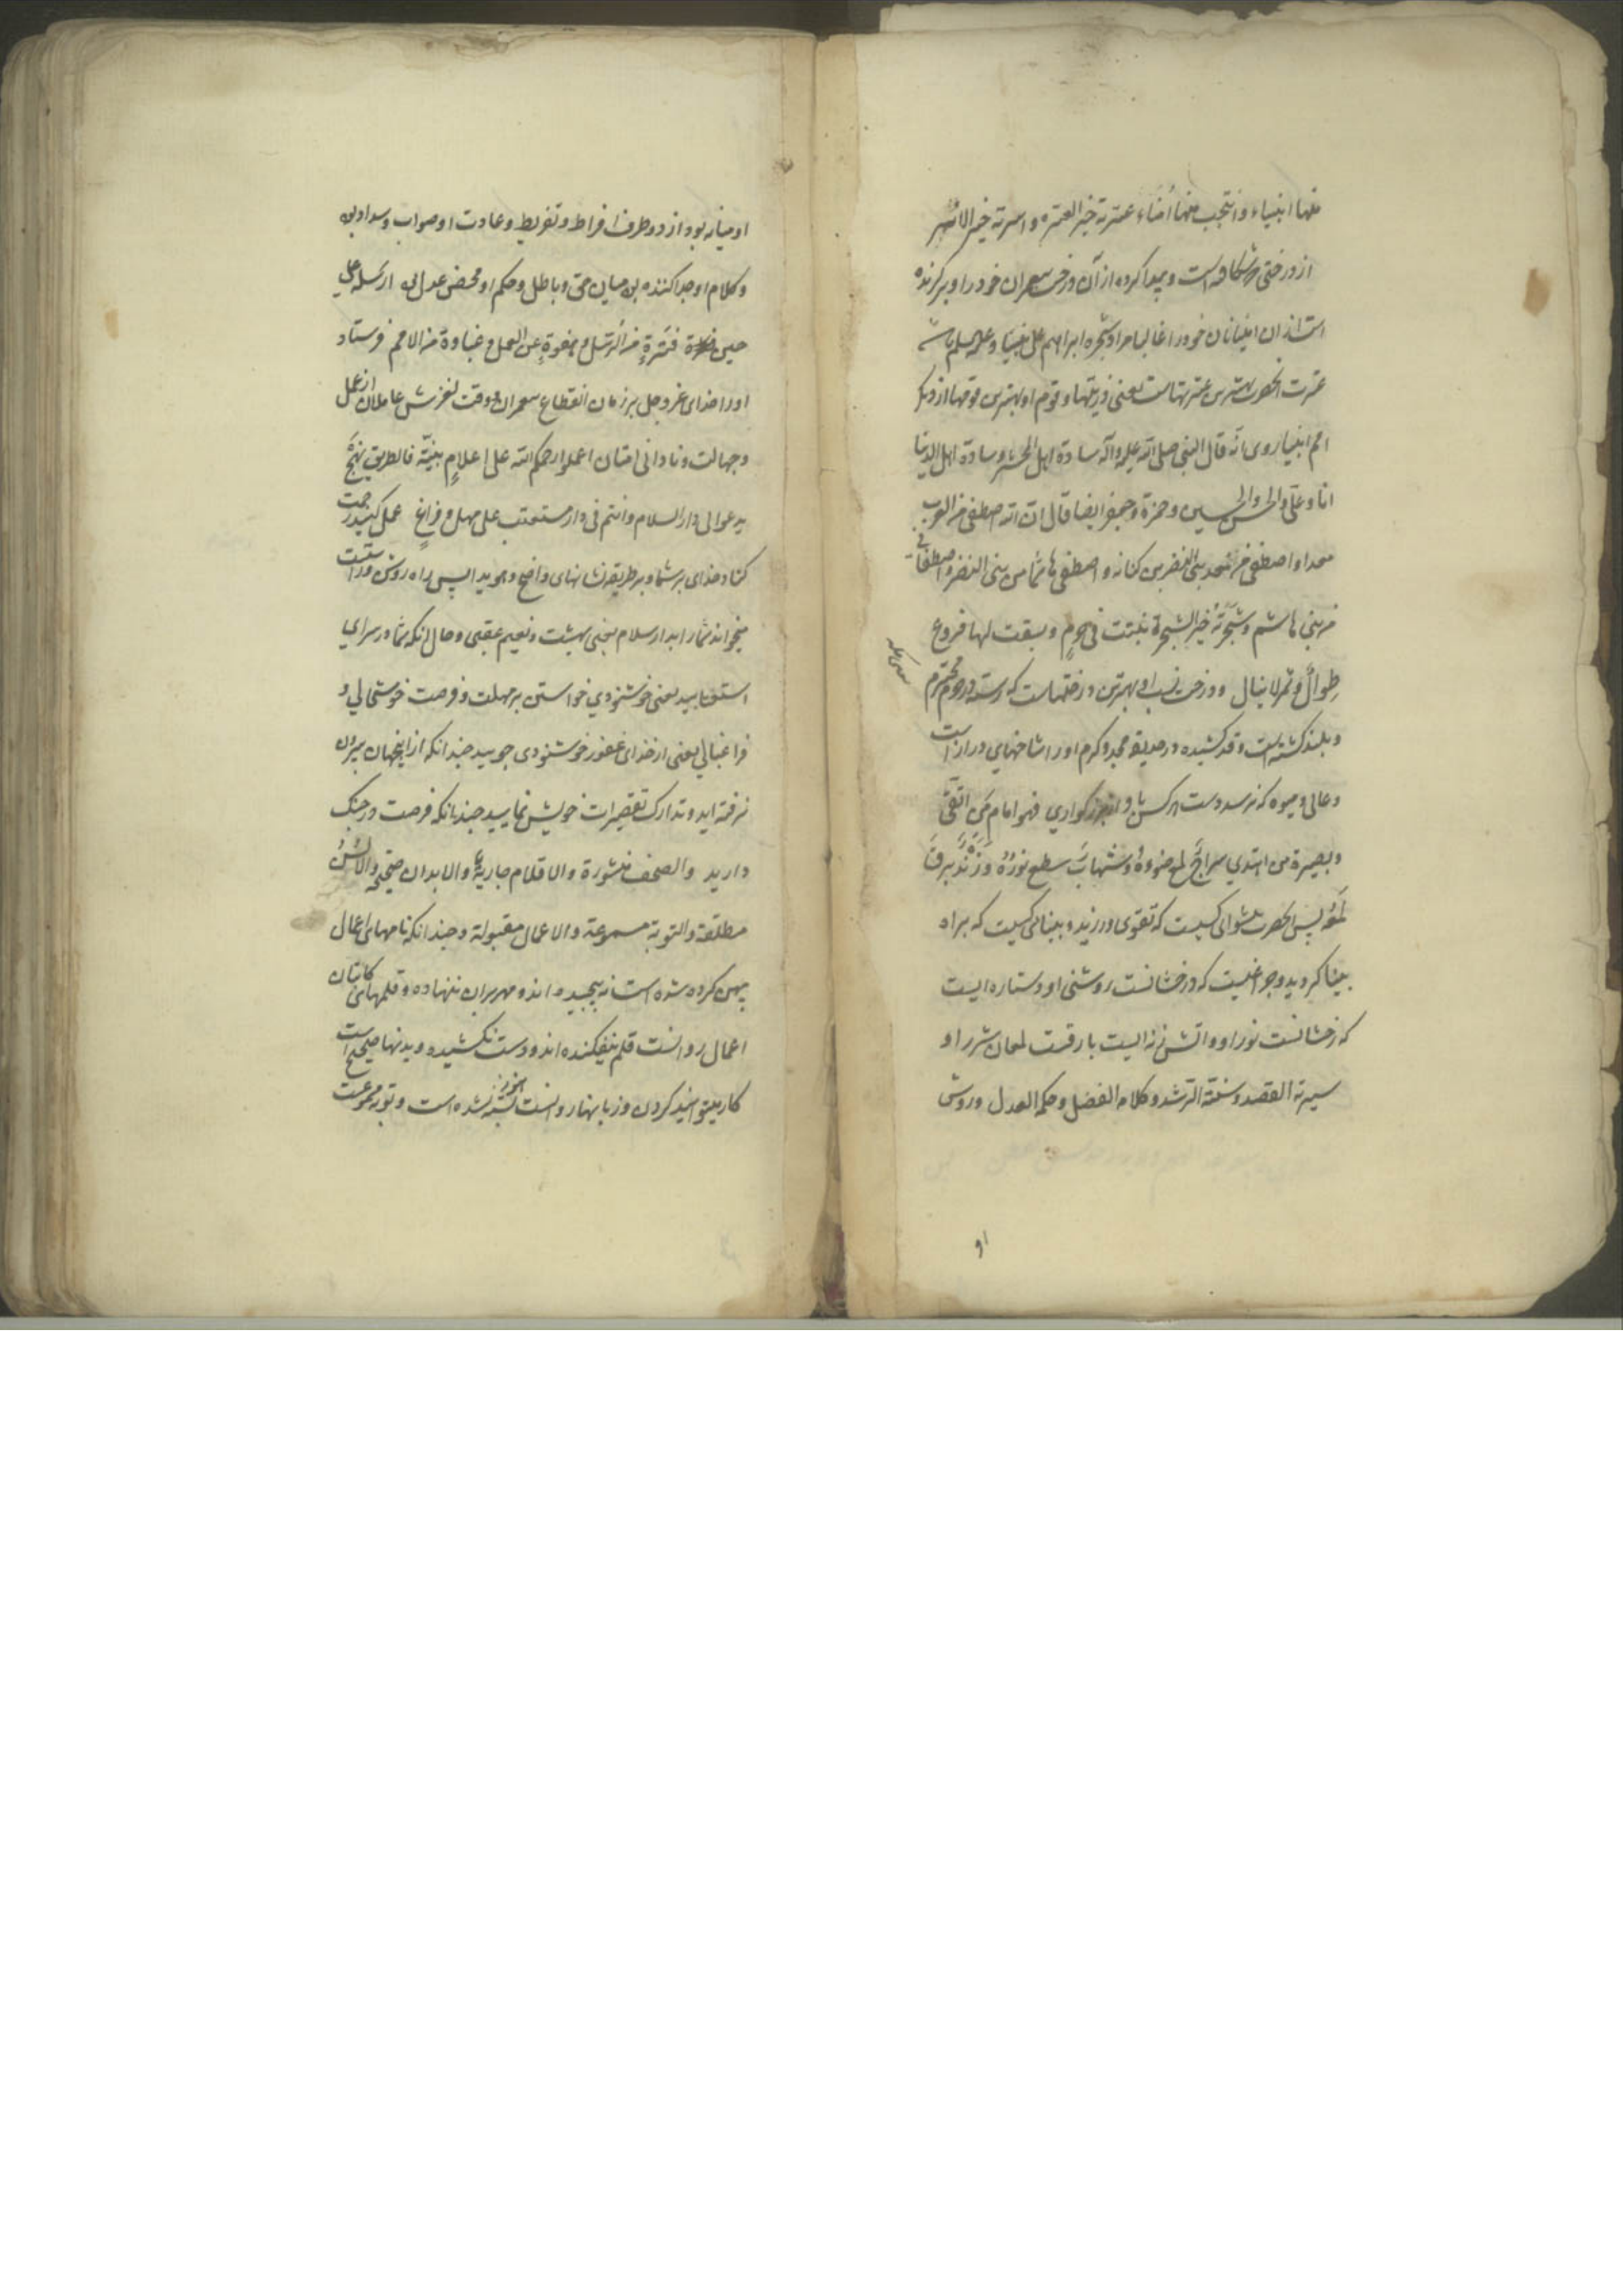 منها انبیاء و انتجب منها أمناء عترته خیر العتره و اسرته خیر الاسر
از درختی که شکافته است و پیدا کرده از آن درخت پیغمبران خود را و برگزیده
است از آن امینانان خود را غالبا مراد شجره ابراهیم علی نبینا و علیه السلم باشد
عترت آنحضرت بهترین عترتهاست یعنی ذریتها و قوم او بهترین قومها از دیگر
امم انبیا روی انه قال النبی صلی الله علیه و آله سادة اهل المحشر و سادة اهل الدنیا
انا و علی و الحسن و الحسین و حمزة و جعفر ایضا قال ان الله اصطفی من العرب
معدا و اصطفی من معد بنی النضر بن کنانه و اصطفی هاشما من بنی النضر و اصطفانی
من بنی هاشم و شجرته خیر الشجرة نبتت فی حرم و بسقت لها فروع
طوال و ثمر لا ینال و درخت نسب او بهترین درختهاست که رسته در حرم محترم
و بلند گشته است و قد کشیده در حدیقه مجد و کرم او را شاخهای دراز است
و عالی و میوه که نرسد دست هر کس با و از بزرگواری فهو امام من اتقی
و بصیرة من اهتدی سراج لمع ضوءه و شهاب سطع نوره و زند برق
لمعه پس آنحضرت پیشوای کسیست که تقوی ورزید و بینائی کسیست که براه
بینا گردید و چراغیست که درخشانست روشنی او و ستاره ایست
که رخشانست نور او و آتش زنه ایست بارقست لمعان شرر او
سیرته القصد و سنته الرشد و کلامه الفصل و حکمه العدل و روش
او
او میانه بود از دو طرف افراط و تفریط و عادت او صواب و سداد بود
و کلام او جدا کننده بود میان حق و باطل و حکم او محض عدل بود ارسله علی
حین فترة من الرسل و هفوة عن العمل و غباوة من الامم فرستاد
او را خدای عز و جل بر زمان انقطاع پیغمبران و وقت لغزش عاملان از عمل
و جهالت و نادانی امتان اعملوا رحمکم الله علی اعلام بینة فالطریق نهج
یدعو الی دار السلام و انتم فی دار مستعتب علی مهل و فراغ عمل کنید رحمت
کناد خدای بر شما و بر طریقه نشانهای واضح و هویدا پس راه روشن و راست
میخواند شما را بدار سلام یعنی بهشت و نعیم عقبی و حال آنکه شما در سرای
استعتابید یعنی خوشنودی خواستن بر مهلت و فرصت خوشحالی و
فراغبالی یعنی از خدای غفور خوشنودی جویید چندانکه از اینجهان بیرون
نرفته اید و تدارک تقصیرات خویش نمایید چندانکه فرصت در چنگ
دارید و الصحف منشورة و الاقلام جاریة و الابدان صحیحة و الالسن
مطلقة و التوبة مسموعة و الاعمال مقبولة و چندانکه نامهای اعمال
پهن کرده شده است نه پیچیده اند و مهر بران ننهاده و قلمهای کاتبان
اعمال روانست قلم نیفکنده اند و دست نکشیده و بدنها صحیح است
کار میتوانید کردن و زبانها روانست هنوز بسته نشده است و توبه مسموعست